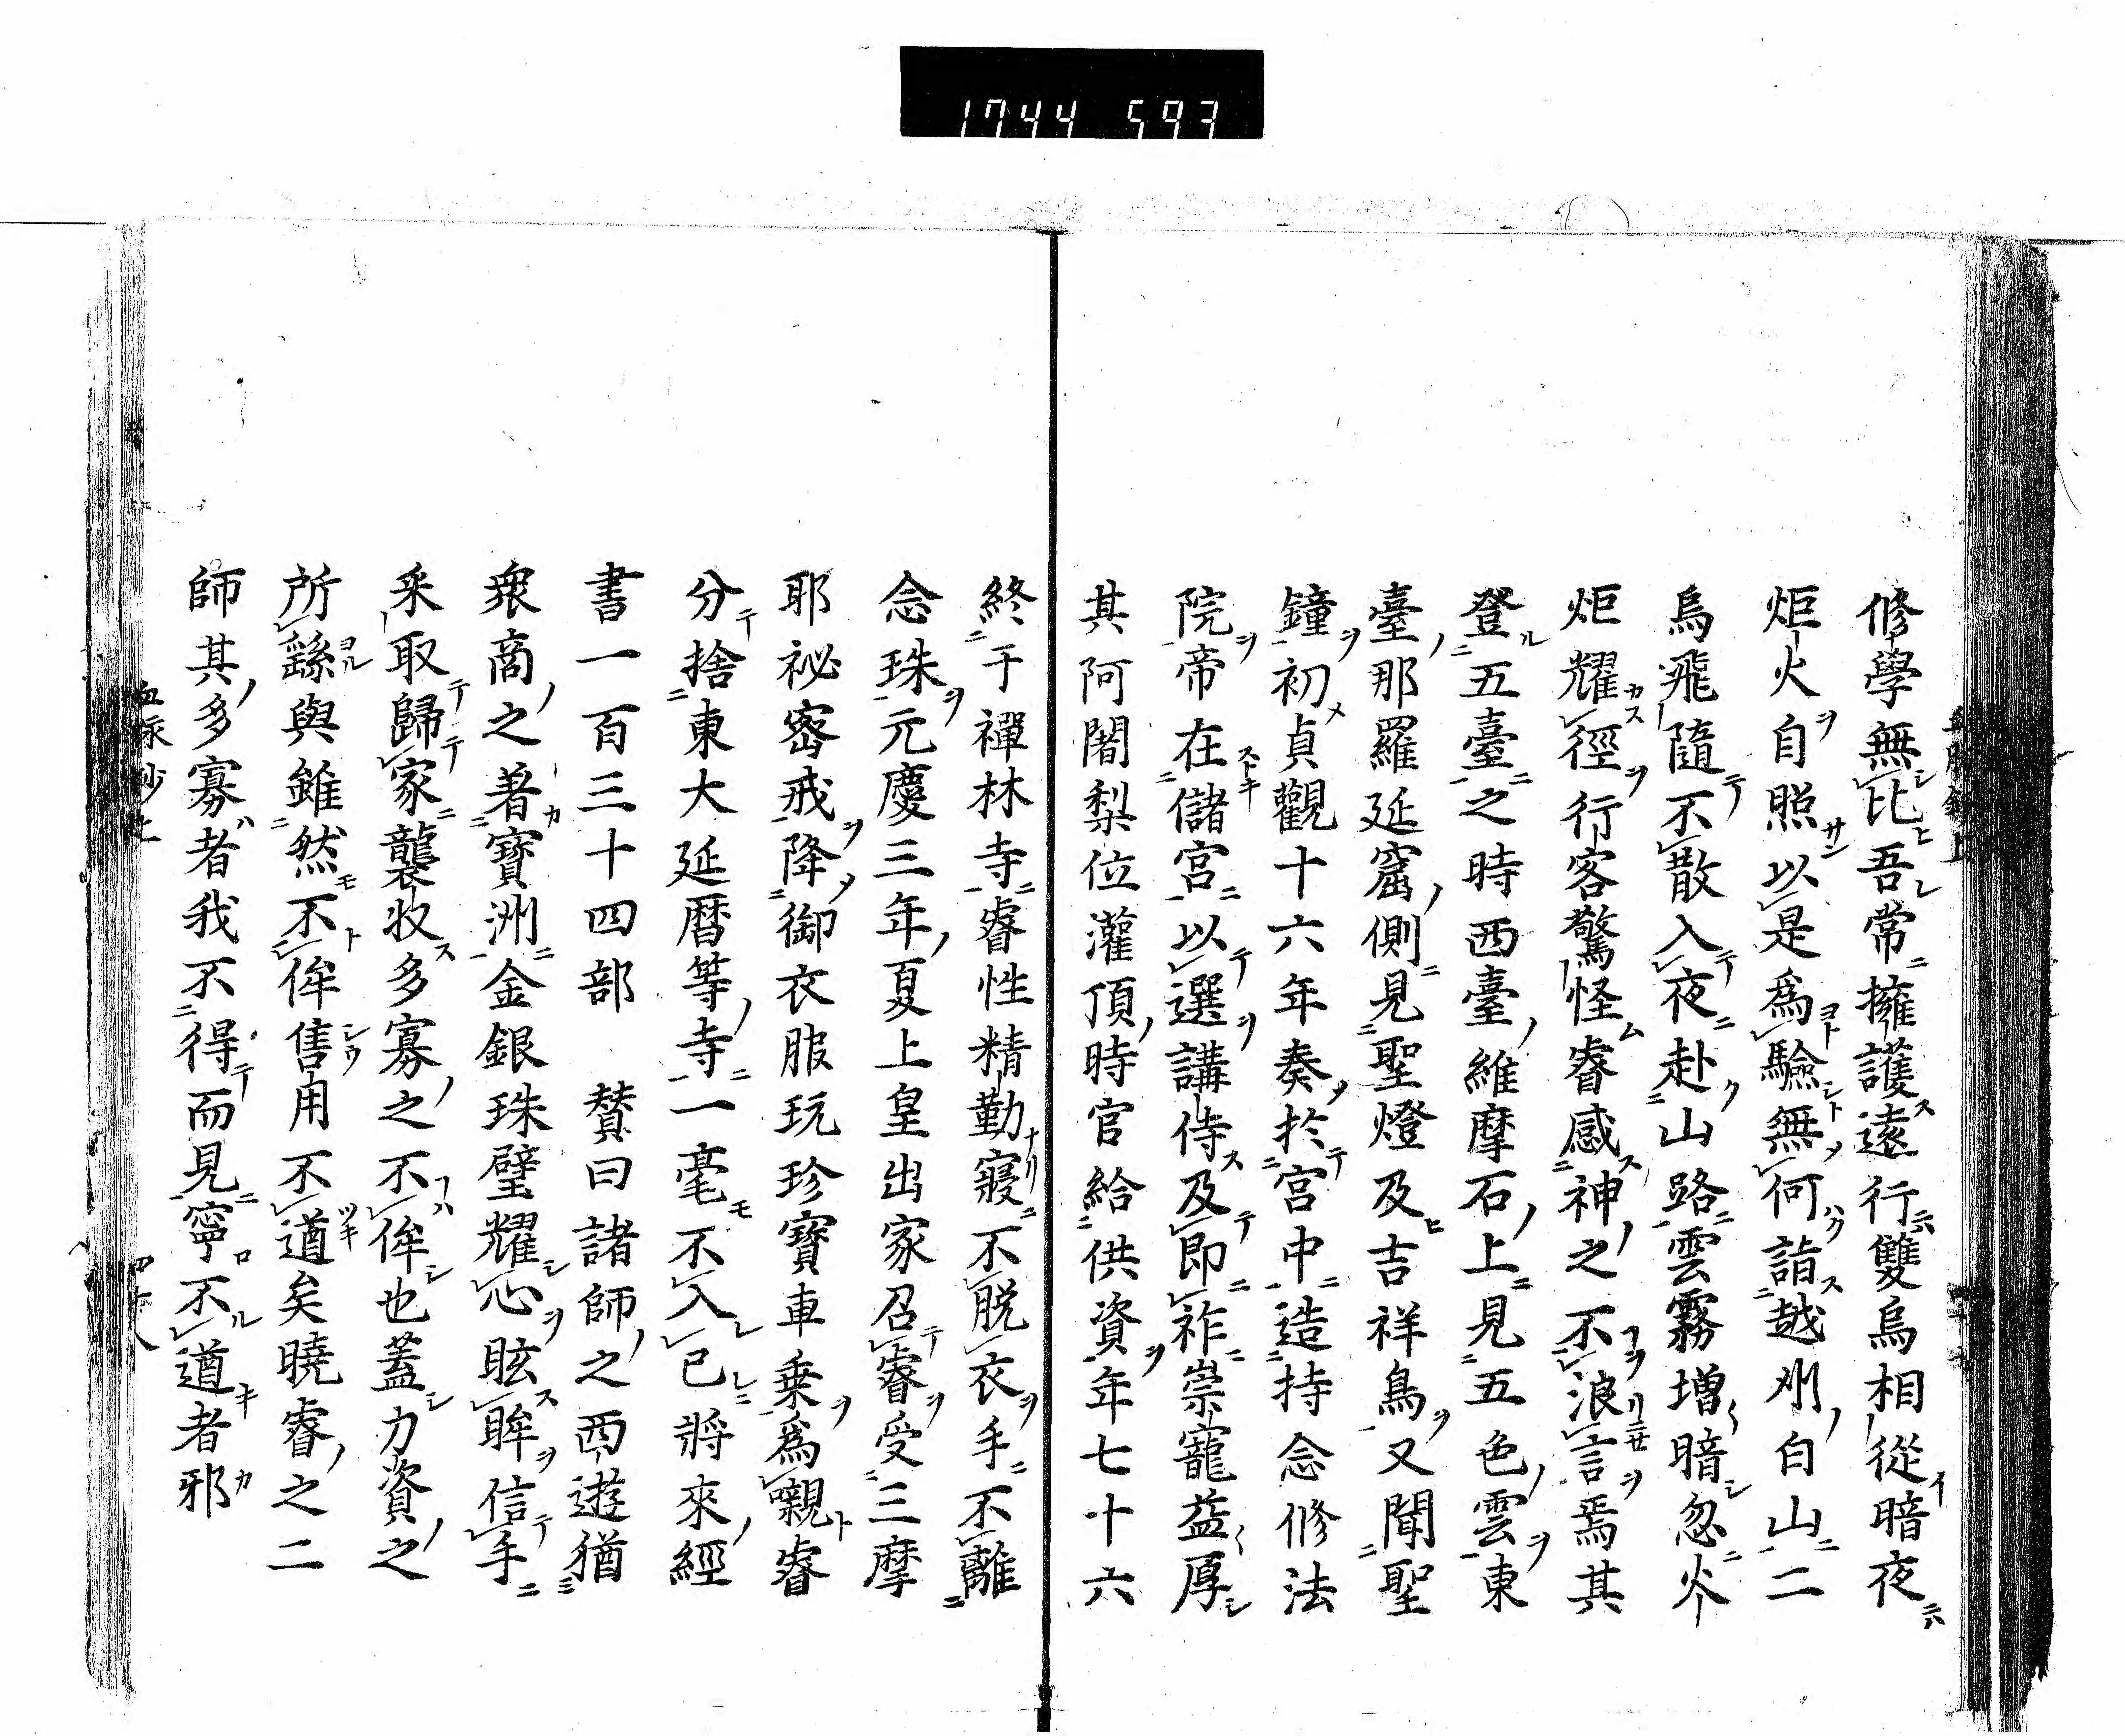 1744 593
修學無比吾常擁護遠行雙烏相從暗夜
炬火自照以是為驗無何詣越州白山二
烏飛隨不散入夜赴山路雲霧增暗忽火
炬耀徑行客驚怪睿感神之不浪言焉其
登五臺之時西臺維摩石上見五色雲東
臺那羅延窟側見聖燈及吉祥鳥又聞聖
鐘初貞觀十六年奏於宮中造持念修法
院帝在儲宮以選講侍及即祚崇寵益厚
其阿闍梨位灌頂時官給供資年七十六
終于禪林寺睿性精勤寢不脱衣手不離
念珠元慶三年夏上皇出家召睿受三摩
耶祕密戒降御衣服玩珍寶車乘為嚫睿
分捨東大延曆等寺一毫不入已將來經
書一百三十四部　贊曰諸師之西遊猶
衆商之著寶洲金銀珠璧耀心眩眸信手
采取歸家襲收多寡之不侔也蓋力資之
所繇與雖然不侔售用不遒矣曉睿之二
師其多寡者我不得而見寧不遒者邪